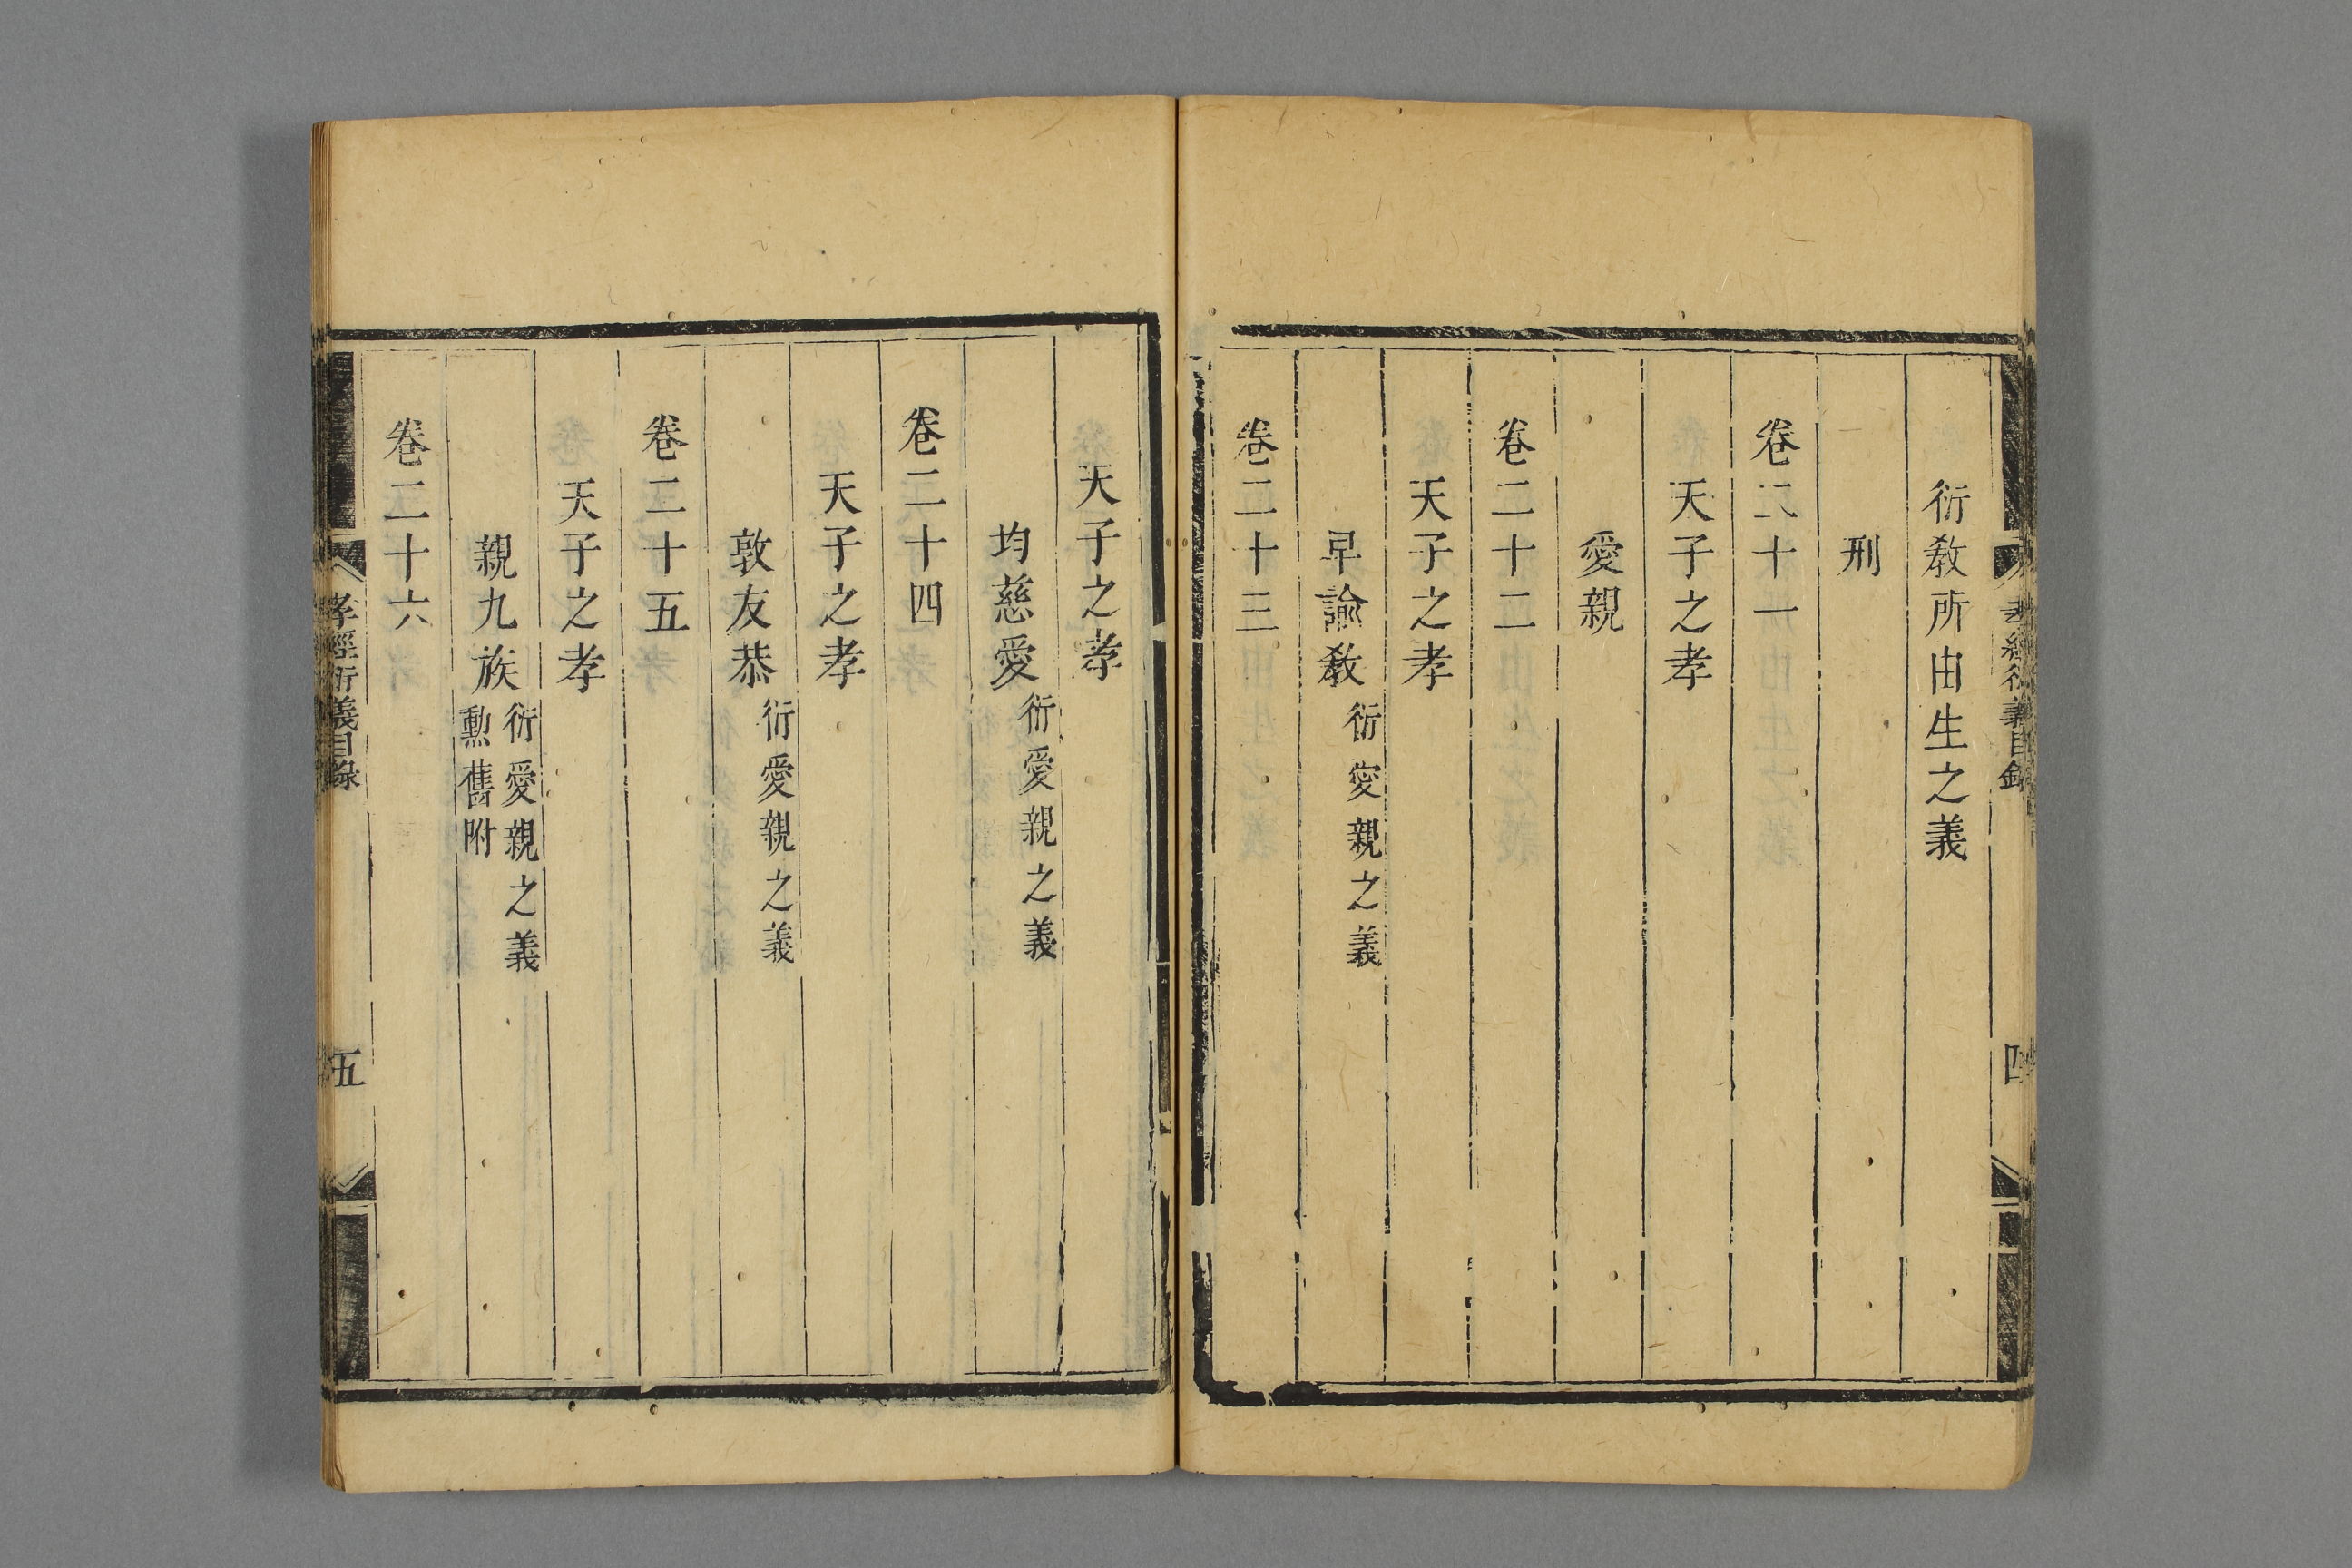 衍教所由生之義
刑
卷二十一
天子之孝
愛親
卷二十二
天子之孝
早諭教衍愛親之義
卷二十三
孝經衍義目錄
四
天子之孝
均慈愛衍愛親之義
卷二十四
天子之孝
敦友恭衍愛親之義
卷二十五
天子之孝
親九族衍愛親之義
勳舊附
卷二十六
孝經衍義目錄
五